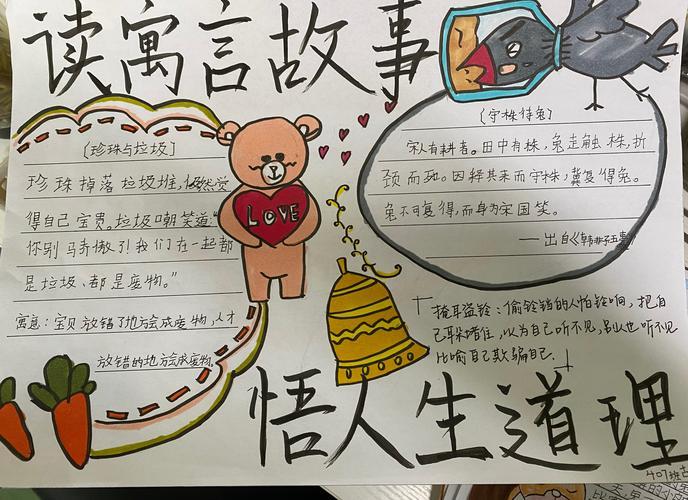 读寓言故事
[珍珠与垃圾]
珍珠掉落垃圾堆，仍然觉
得自己宝贵。垃圾嘲笑道："
你别骄傲了！我们在一起都
是垃圾、都是废物。"
寓意：宝贝放错了地方会成废物，人才
放错的地方会成废物。
[守株待兔]
宋人有耕者。田中有株，兔走触株，折
颈而死。因释其耒而守株，冀复得兔。
兔不可复得，而身为宋国笑。
——出自《韩非子五蠹》
LOVE
「掩耳盗铃：偷铃铛的人怕铃响，把自
己耳朵堵住，以为自己听不见，别人也听不见
比喻自己欺骗自己.」
悟人生道理
407班